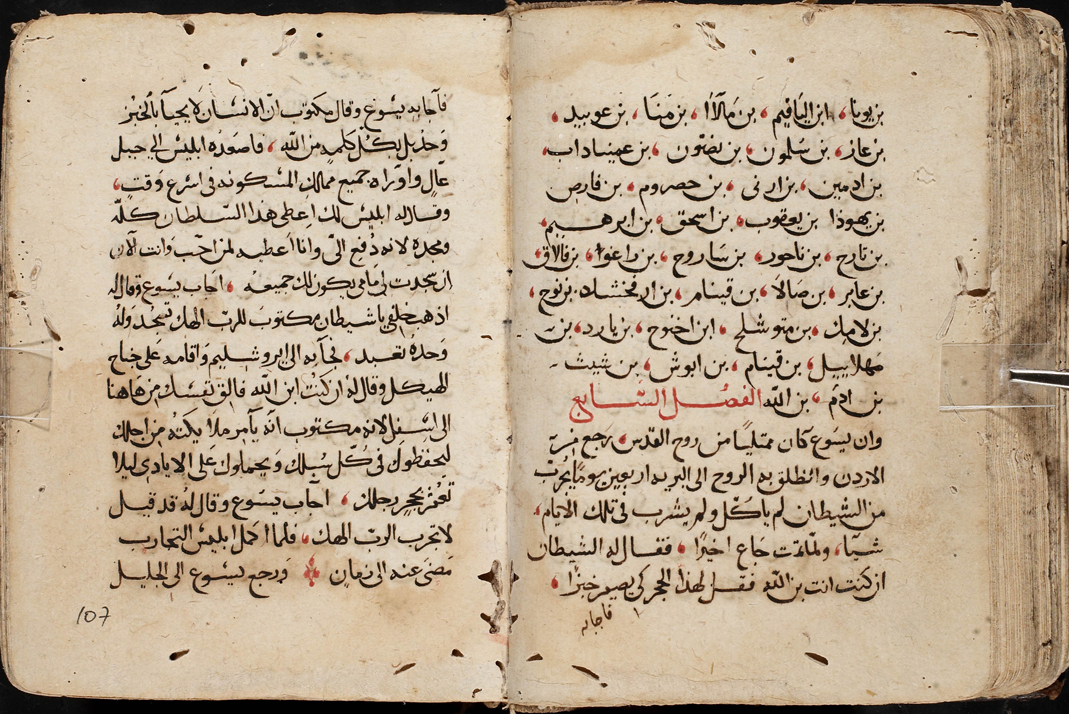 بن يونا، ابن الياقيم، بن مالاا، بن منا، بن عوبيد،
بن عاز، بن سلمون، بن نصون، بن عميناداب،
بن ادمين، بن ارنى، بن حصروم، بن فارص
بن يهوذا بن يعقوب، بن اسحق، بن ابرهيم،
بن تارح، بن ناحور، بن ساروح، بن راغوا، بن فالاق،
بن عابر، بن صالا، بن قينام، بن ارفخشاد، بن نوح،
بن لامك، بن متوشلح، ابن اخنوح، بن يارد، بن
مهلاييل، بن قينام، بن انوش، بن شيث
بن ادم، بن الله الفصل السابع
وان يسوع كان ممتليًا من روح القدس، رجع من
الاردن وانطلق به الروح الى البريه اربعين يومًا يجرب
من الشيطان لم ياكل ولم يشرب في تلك الايام،
شيًا، ولما تمت جاع اخيرًا، فقال له الشيطان
ان كنت انت بن الله فقل لهذا الحجر كى يصير خبزًا،
فاجابه
فاجابه يسوع وقال مكتوب ان الانسان لا يحيا بالخبز
وحده بل بكل كلمه من الله، فاصعده ابليس الى جبل
عال واوراه جميع ممالك المسكونه في اسرع وقت،
وقال له ابليس لك اعطى هذا السلطان كله
ومجده لانه دُفع الىّ وانا اعطيه لمن احب وانت الان
ان سجدت لى امامى يكون لك جميعه، اجاب يسوع وقال له
اذهب خلفي يا شيطان مكتوب للرب الهك تسجد وله
وحده تعبد، فجآ به الى ايروشليم واقامه على جناح
الهيكل وقال له ان كنت ابن الله فالق نفسك من هاهنا
الى اسفل لانه مكتوب انه يامر ملايكته من اجلك
ليحفظوك في كل سبلك ويحملوك على الايادى ليلا
تعثر بحجر رجلك، اجاب يسوع وقال له قد قيل
لا تجرب الرب الهك، فلما اكمل ابليس التجارب
مضى عنه الى زمان ورجع يسوع الى الجليل
107